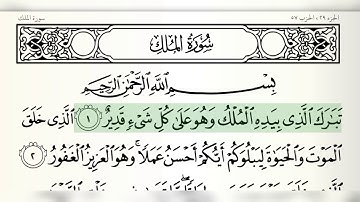 الجزء ٢٩، الحزب ٥٧
سورة الملك
سُورَةُ المُلْكِ
بِسْمِ اللَّهِ الرَّحْمَٰنِ الرَّحِيمِ
تَبَارَكَ الَّذِي بِيَدِهِ الْمُلْكُ وَهُوَ عَلَىٰ كُلِّ شَيْءٍ قَدِيرٌ ١ الَّذِي خَلَقَ
الْمَوْتَ وَالْحَيَوٰةَ لِيَبْلُوَكُمْ أَيُّكُمْ أَحْسَنُ عَمَلًا ۚ وَهُوَ الْعَزِيزُ الْغَفُورُ ٢